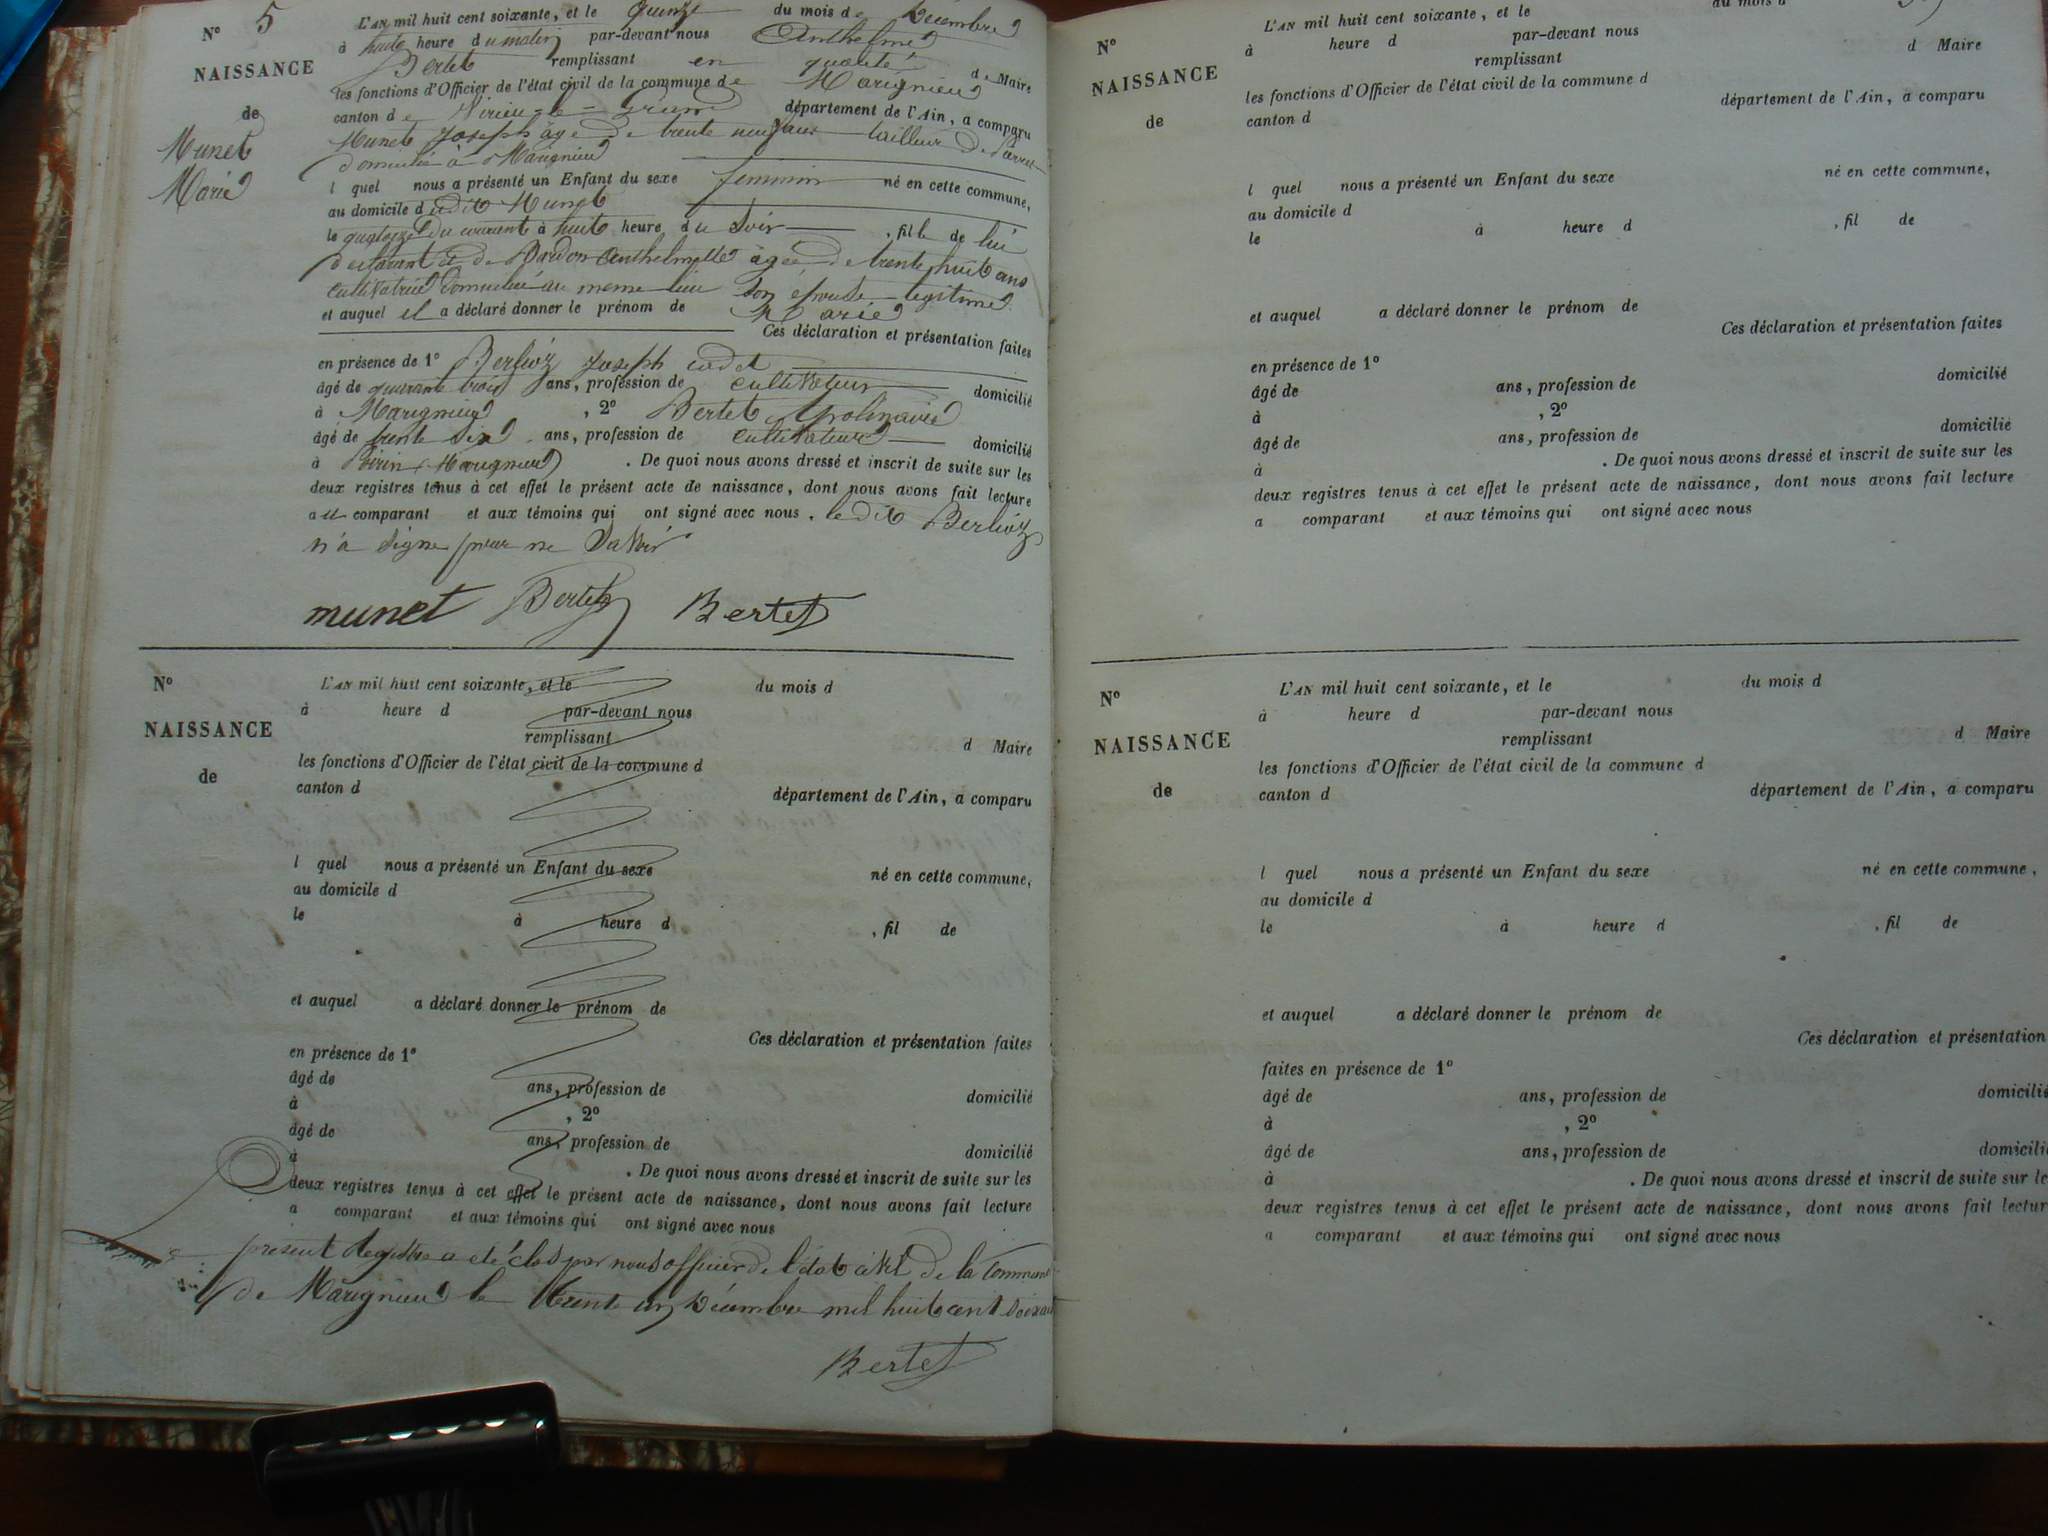 N° 5
NAISSANCE
de
Munet
Marie
L'AN mil huit cent soixante, et le quinze du mois de Décembre
à huit heure du matin par-devant nous Anthelme
Bertet remplissant en qualité de Maire
les fonctions d'Officier de l'état civil de la commune de Marignieu
canton de Virieu-le-Grand département de l'Ain, a comparu
Munet Joseph âgé de trente neuf ans tailleur de
domicilié à Marignieu
l quel nous a présenté un Enfant du sexe feminin né en cette commune,
au domicile dudit Munet
le quatorze du courant à huit heure du Soir , fille de lui
déclarant et de Pardon Anthelmette âgée de trente huit ans
cultivatrice domiciliée au meme lieu son épouse legitime
et auquel il a déclaré donner le prénom de Marie
Ces déclaration et présentation faites
en présence de 1° Berlioz Joseph cadet
âgé de quarante trois ans, profession de cultivateur domicilié
à Marignieu , 2° Bertet Apolinaire
âgé de trente six ans, profession de cultivateur domicilié
à (Marignieu) . De quoi nous avons dressé et inscrit de suite sur les
deux registres tenus à cet effet le présent acte de naissance, dont nous avons fait lecture
au comparant et aux témoins qui ont signé avec nous . ledit Berlioz
n'a signe pour ne Savoir
munet Bertet Bertet
N°
NAISSANCE
de
L'AN mil huit cent soixante, et le du mois d
à heure d par-devant nous
remplissant d Maire
les fonctions d'Officier de l'état civil de la commune d
canton d département de l'Ain, a comparu
l quel nous a présenté un Enfant du sexe né en cette commune,
au domicile d
le à heure d , fil de
et auquel a déclaré donner le prénom de
Ces déclaration et présentation faites
en présence de 1°
âgé de ans, profession de domicilié
à , 2°
âgé de ans, profession de domicilié
à . De quoi nous avons dressé et inscrit de suite sur les
deux registres tenus à cet effet le présent acte de naissance, dont nous avons fait lecture
a comparant et aux témoins qui ont signé avec nous
présent Registre a été clos par nous officier de l'état civil de la Commune
de Marignieu le trente un Décembre mil huit cent Soixante
Bertet
N°
NAISSANCE
de
L'AN mil huit cent soixante, et le du mois d
à heure d par-devant nous
remplissant d Maire
les fonctions d'Officier de l'état civil de la commune d
canton d département de l'Ain, a comparu
l quel nous a présenté un Enfant du sexe né en cette commune,
au domicile d
le à heure d , fil de
et auquel a déclaré donner le prénom de
Ces déclaration et présentation faites
en présence de 1°
âgé de ans, profession de domicilié
à , 2°
âgé de ans, profession de domicilié
à . De quoi nous avons dressé et inscrit de suite sur les
deux registres tenus à cet effet le présent acte de naissance, dont nous avons fait lecture
a comparant et aux témoins qui ont signé avec nous
N°
NAISSANCE
de
L'AN mil huit cent soixante, et le du mois d
à heure d par-devant nous
remplissant d Maire
les fonctions d'Officier de l'état civil de la commune d
canton d département de l'Ain, a comparu
l quel nous a présenté un Enfant du sexe né en cette commune,
au domicile d
le à heure d , fil de
et auquel a déclaré donner le prénom de
Ces déclaration et présentation
faites en présence de 1°
âgé de ans, profession de domicilié
à , 2°
âgé de ans, profession de domicilié
à . De quoi nous avons dressé et inscrit de suite sur le
deux registres tenus à cet effet le présent acte de naissance, dont nous avons fait lectur
a comparant et aux témoins qui ont signé avec nous